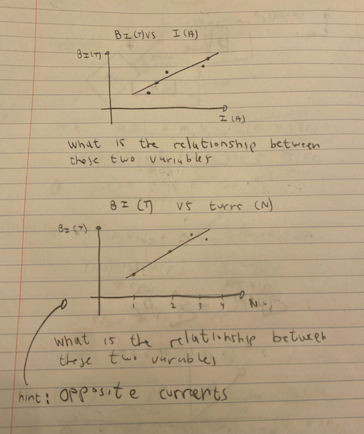 BI(T) VS I(A)
BI(T)
I(A)
what is the relationship between
these two variables
BI (T) VS turns (N)
BI(T)
1 2 3 4
what is the relationship between
these two variables
hint: opposite currents